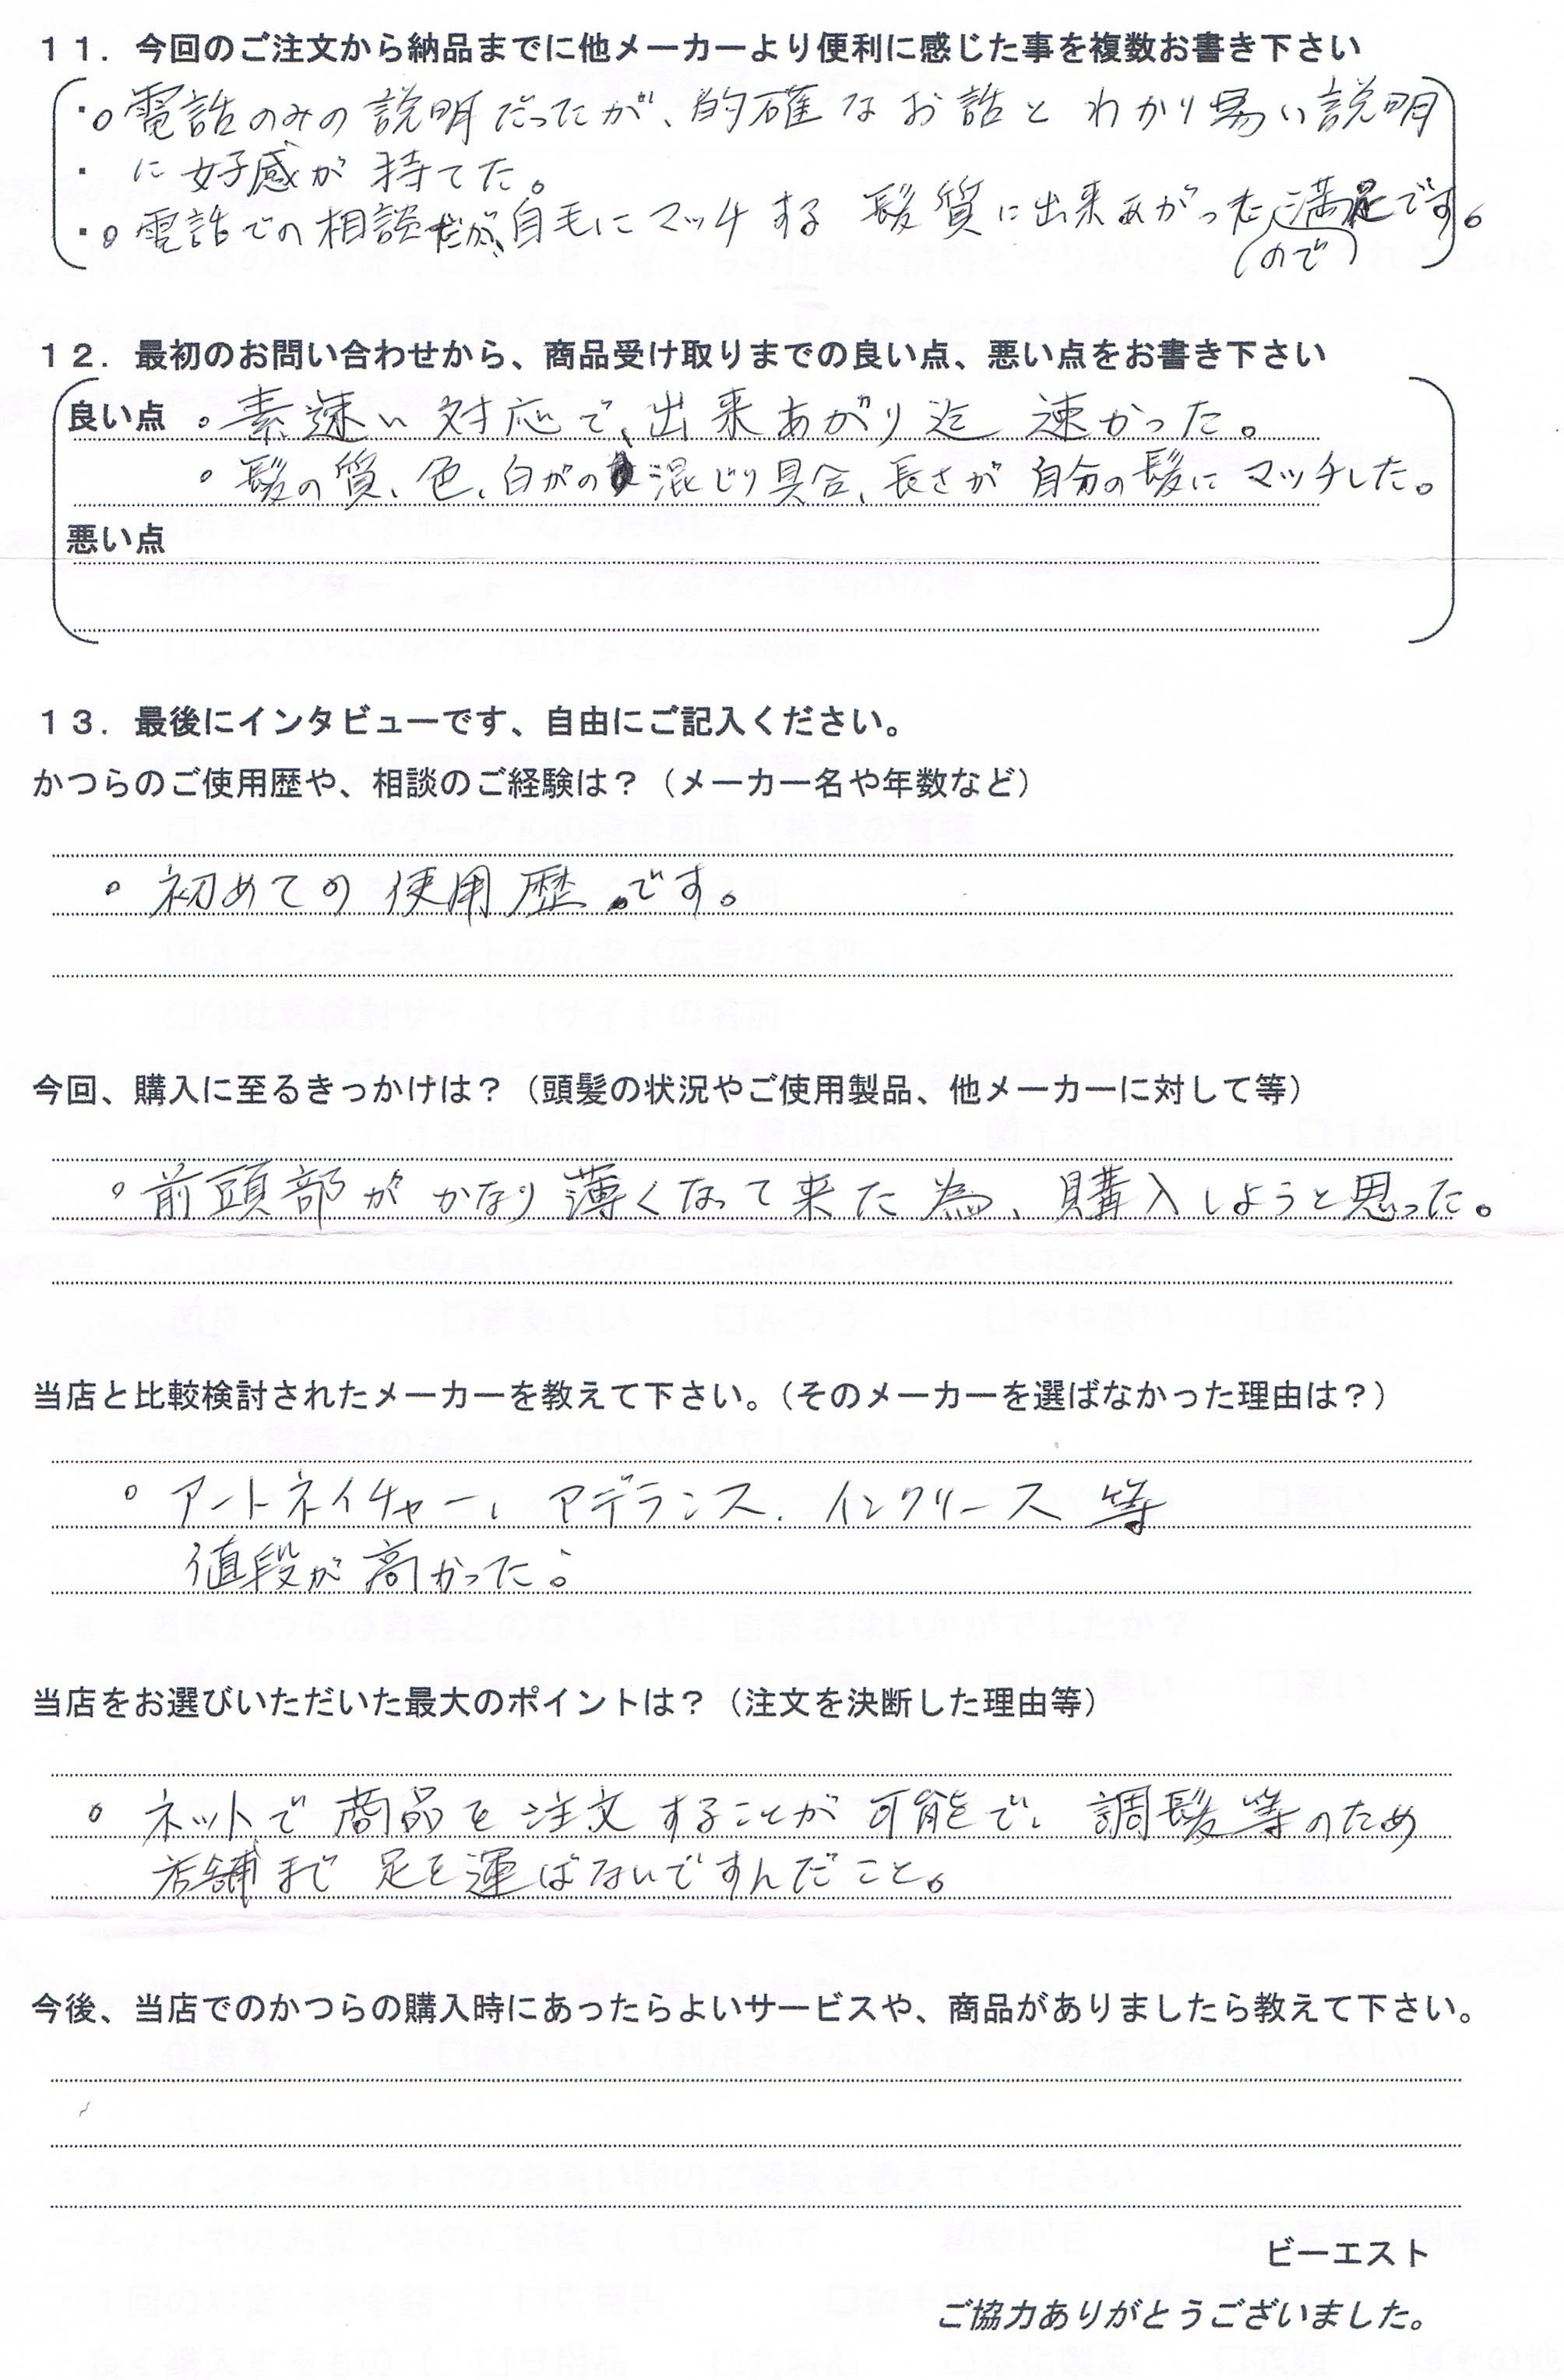 11．今回のご注文から納品までに他メーカーより便利に感じた事を複数お書き下さい
・○電話のみの説明だったが、的確なお話とわかり易い説明
・に好感が持てた。
・○電話での相談だが、自毛にマッチする髪質に出来あがった(ので)満足です。
12．最初のお問い合わせから、商品受け取りまでの良い点、悪い点をお書き下さい
良い点 ○素速い対応で、出来あがり迄速かった。
○髪の質、色、白がの混じり具合、長さが自分の髪にマッチした。
悪い点
13．最後にインタビューです、自由にご記入ください。
かつらのご使用歴や、相談のご経験は？（メーカー名や年数など）
○初めての使用歴です。
今回、購入に至るきっかけは？（頭髪の状況やご使用製品、他メーカーに対して等）
○前頭部がかなり薄くなって来た為、購入しようと思った。
当店と比較検討されたメーカーを教えて下さい。（そのメーカーを選ばなかった理由は？）
○アートネイチャー、アデランス、インクリース等
値段が高かった。
当店をお選びいただいた最大のポイントは？（注文を決断した理由等）
○ネットで商品を注文することが可能で、調髪等のため
店舗まで足を運ばないですんだこと。
今後、当店でのかつらの購入時にあったらよいサービスや、商品がありましたら教えて下さい。
ビーエスト
ご協力ありがとうございました。